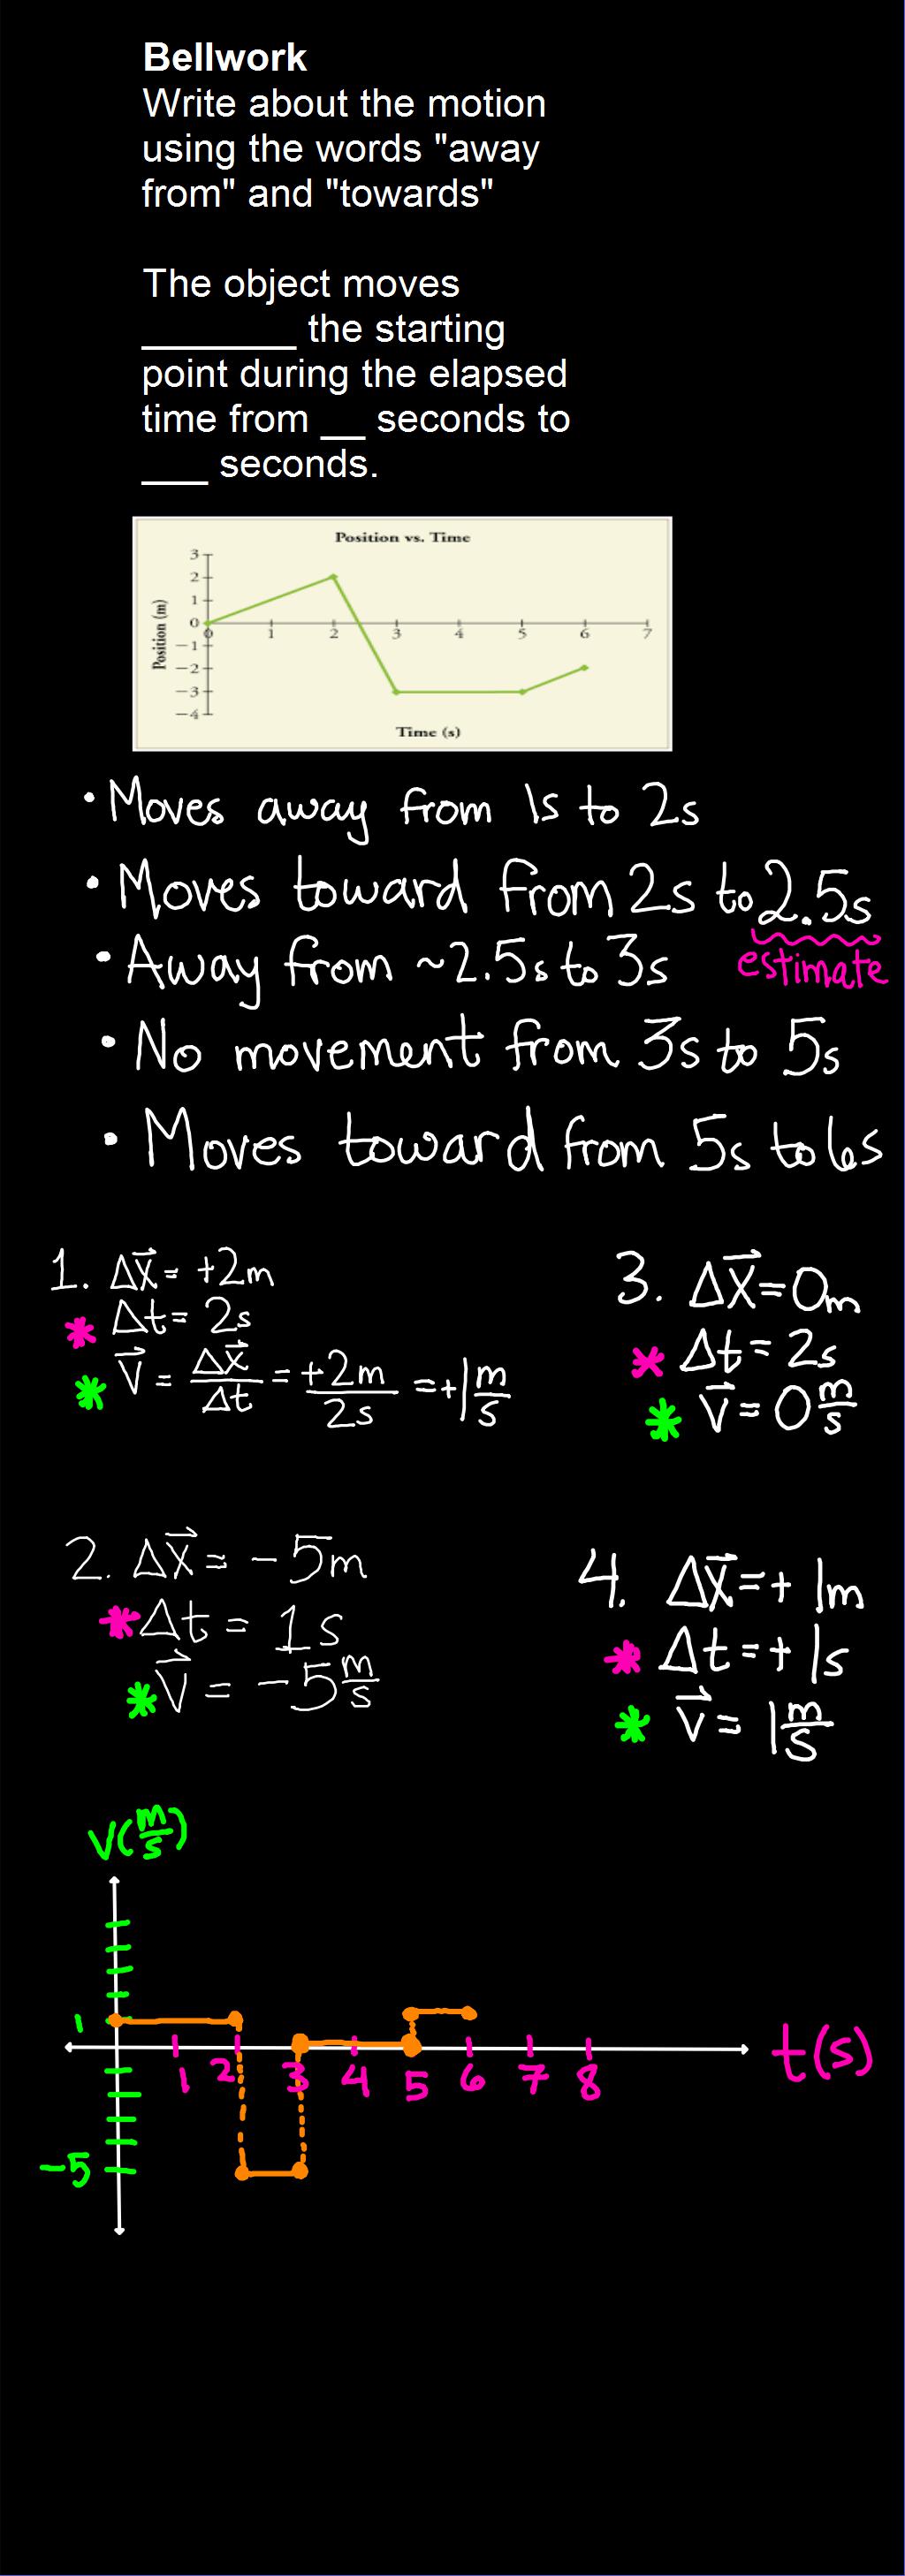 Bellwork
Write about the motion
using the words "away
from" and "towards"
The object moves
_______ the starting
point during the elapsed
time from __ seconds to
___ seconds.
Position vs. Time
Position (m)
3
2
1
0
−1
−2
−3
−4
0 1 2 3 4 5 6 7
Time (s)
• Moves away from 1s to 2s
• Moves toward from 2s to 2.5s
estimate
• Away from ~2.5s to 3s
• No movement from 3s to 5s
• Moves toward from 5s to 6s
1. Δx⃗ = +2m
* Δt = 2s
* v⃗ = Δx⃗/Δt = +2m/2s = +1 m/s
2. Δx⃗ = -5m
* Δt = 1s
* v⃗ = -5 m/s
3. Δx⃗ = 0m
* Δt = 2s
* v⃗ = 0 m/s
4. Δx⃗ = + 1m
* Δt = + 1s
* v⃗ = 1 m/s
V(m/s)
1
-5
1 2 3 4 5 6 7 8
t(s)